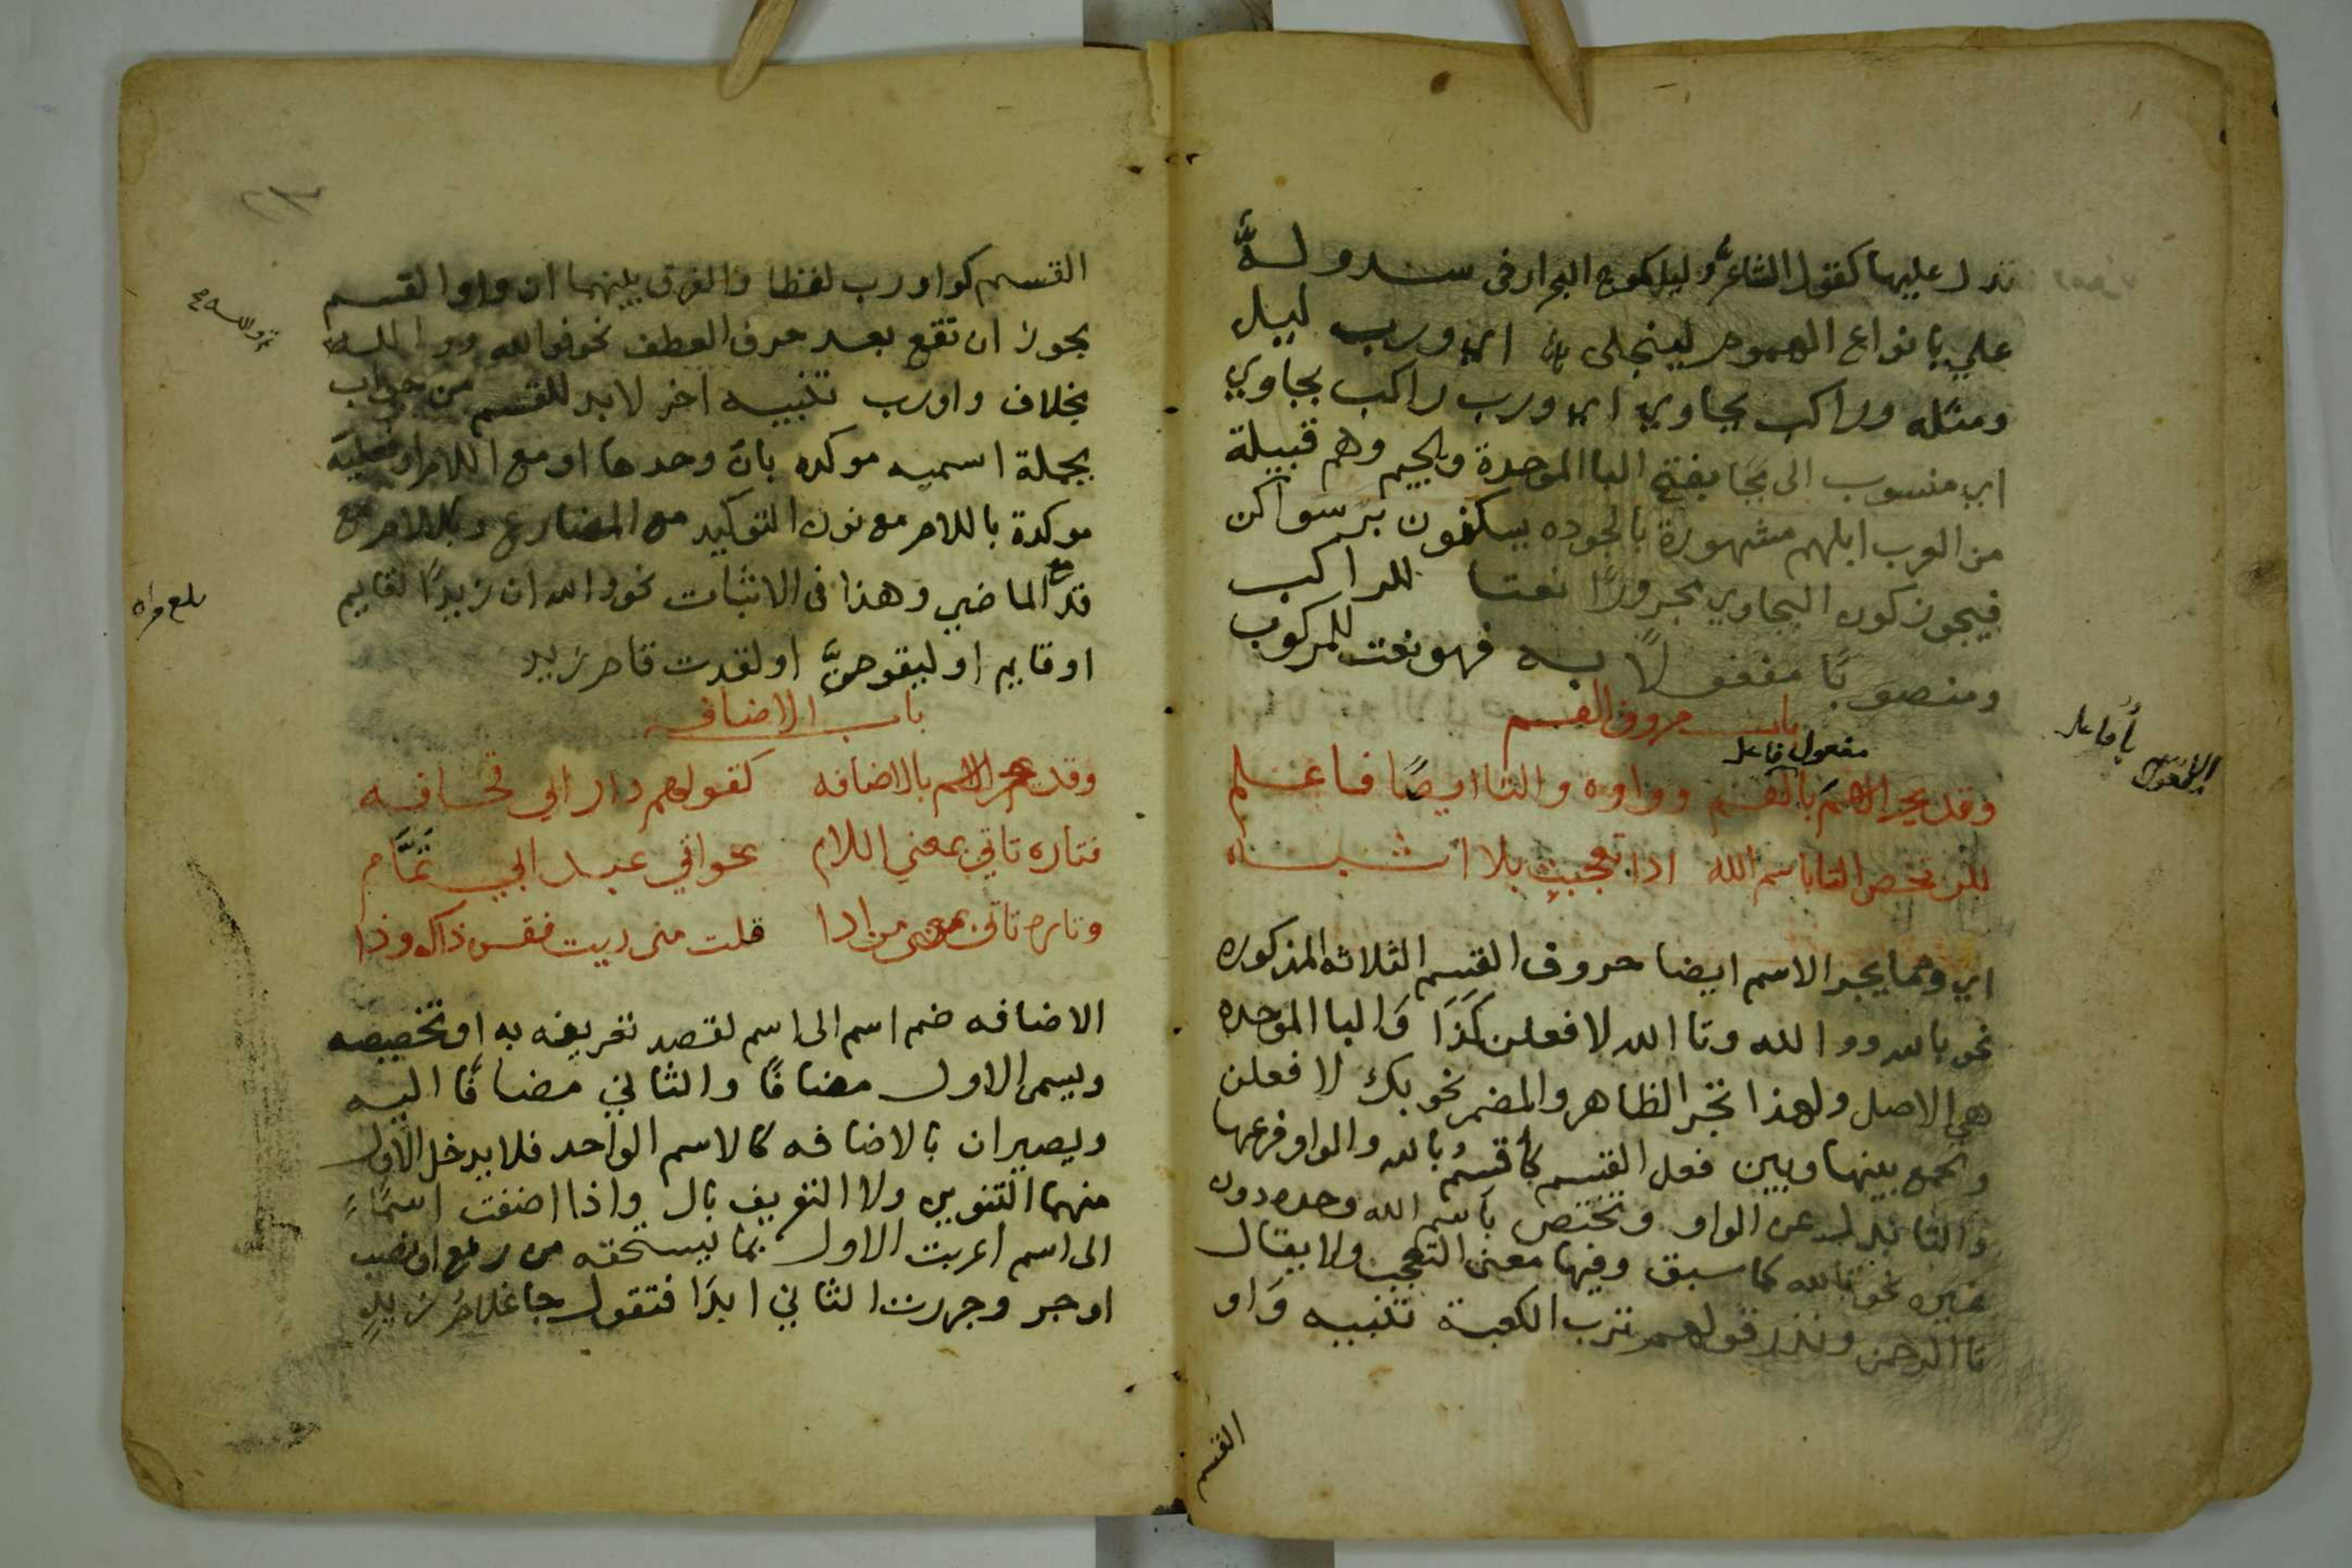 تدل عليها كقول الشاعر وليل كموج البحر ارخى سدوله
علي بانواع الهموم ليبتلى اي ورب ليل
ومثله وراكب بجاوي اي ورب راكب بجاوي
اي منسوب الى بجا بفتح البا الموحدة والجيم وهم قبيلة
من العرب ابلهم مشهورة بالجوده يسكنون بر سواكن
فيجوز كون البجاوي مجرورًا نعتا للراكب
ومنصوبًا مفعولًا به فهو نعت للمركوب
باب حروف القسم
مفعول فاعل
وقد يجر الاسم با القسم وواوه والتا ايضًا فاعلم
لكن تخص التا باسم الله اذا تعجبت بلا اشتباه
اي ومما يجر الاسم ايضا حروف القسم الثلاثه المذكوره
نحو بالله ووالله وتا الله لافعلن كذا والبا الموحده
هي الاصل ولهذا تجر الظاهر والمضمر نحو بك لافعلن
وتجمع بينها وبين فعل القسم كأقسم بالله والواو فرعها
والتا بدل عن الواو وتختص باسم الله وحده دون
غيره نحو تالله كما سبق وفيها معنى التعجب ولا يقال
تا الرحمن وندر قولهم ترب الكعبة تنبيه واو
القسم
القسم كواو رب لفظا والفرق بينهما ان واو القسم
يجوز ان تقع بعد حرف العطف نحو فوالله ووالله
بخلاف واو رب تنبيه اخر لا بد للقسم من جواب
بجملة اسميه موكده بان وحدها او مع اللام او فعلية
موكدة باللام مع نون التوكيد مع المضارع وباللام مع
قد مع الماضي وهذا في الاثبات نحو والله ان زيدًا لقايم
او قايم او ليقومن او لقد قام زيد
بلغ قراه
باب الاضافه
وقد يجر الاسم بالاضافه كقولهم دار ابي قحافه
فتاره تاتي بمعني اللام نحو اتي عبد ابي تمام
وتاره تاتي بمعنى من اذا قلت منى زيت فقس ذاك وذا
الاضافه ضم اسم الى اسم لقصد تعريفه به او تخصيصه
ويسمى الاول مضافًا والثاني مضافًا اليه
ويصيران بالاضافه كالاسم الواحد فلا يدخل الاول
منهما التنوين ولا التعريف بال واذا اضفت اسمًا
الى اسم اعربت الاول بما يستحقه من رفع او نصب
او جر وجررت الثاني ابدًا فتقول جا غلام زيدٍ